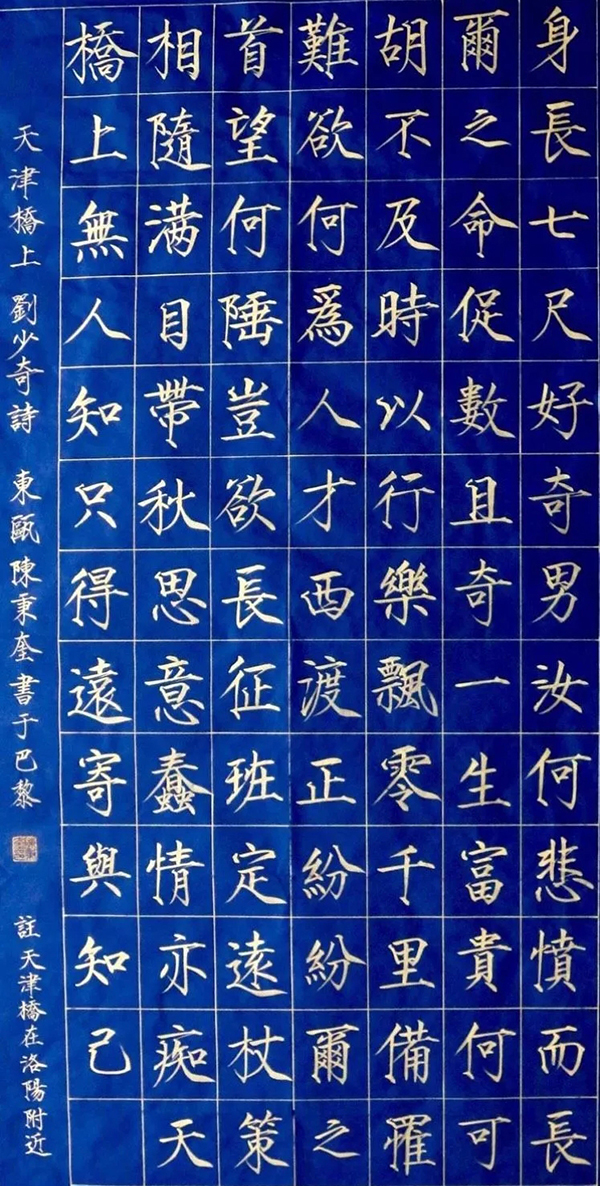 身長七尺好奇男汝何悲憤而長
爾之命促數且奇一生富貴何可
胡不及時以行樂飄零千里備罹
難欲何爲人才西渡正紛紛爾之
首望何陲豈欲長征班定遠杖策
相隨满目帶秋思意蠢情亦痴天
橋上無人知只得遠寄與知己
天津橋上 劉少奇詩 東甌陳秉奎書于巴黎
註 天津橋在洛陽附近